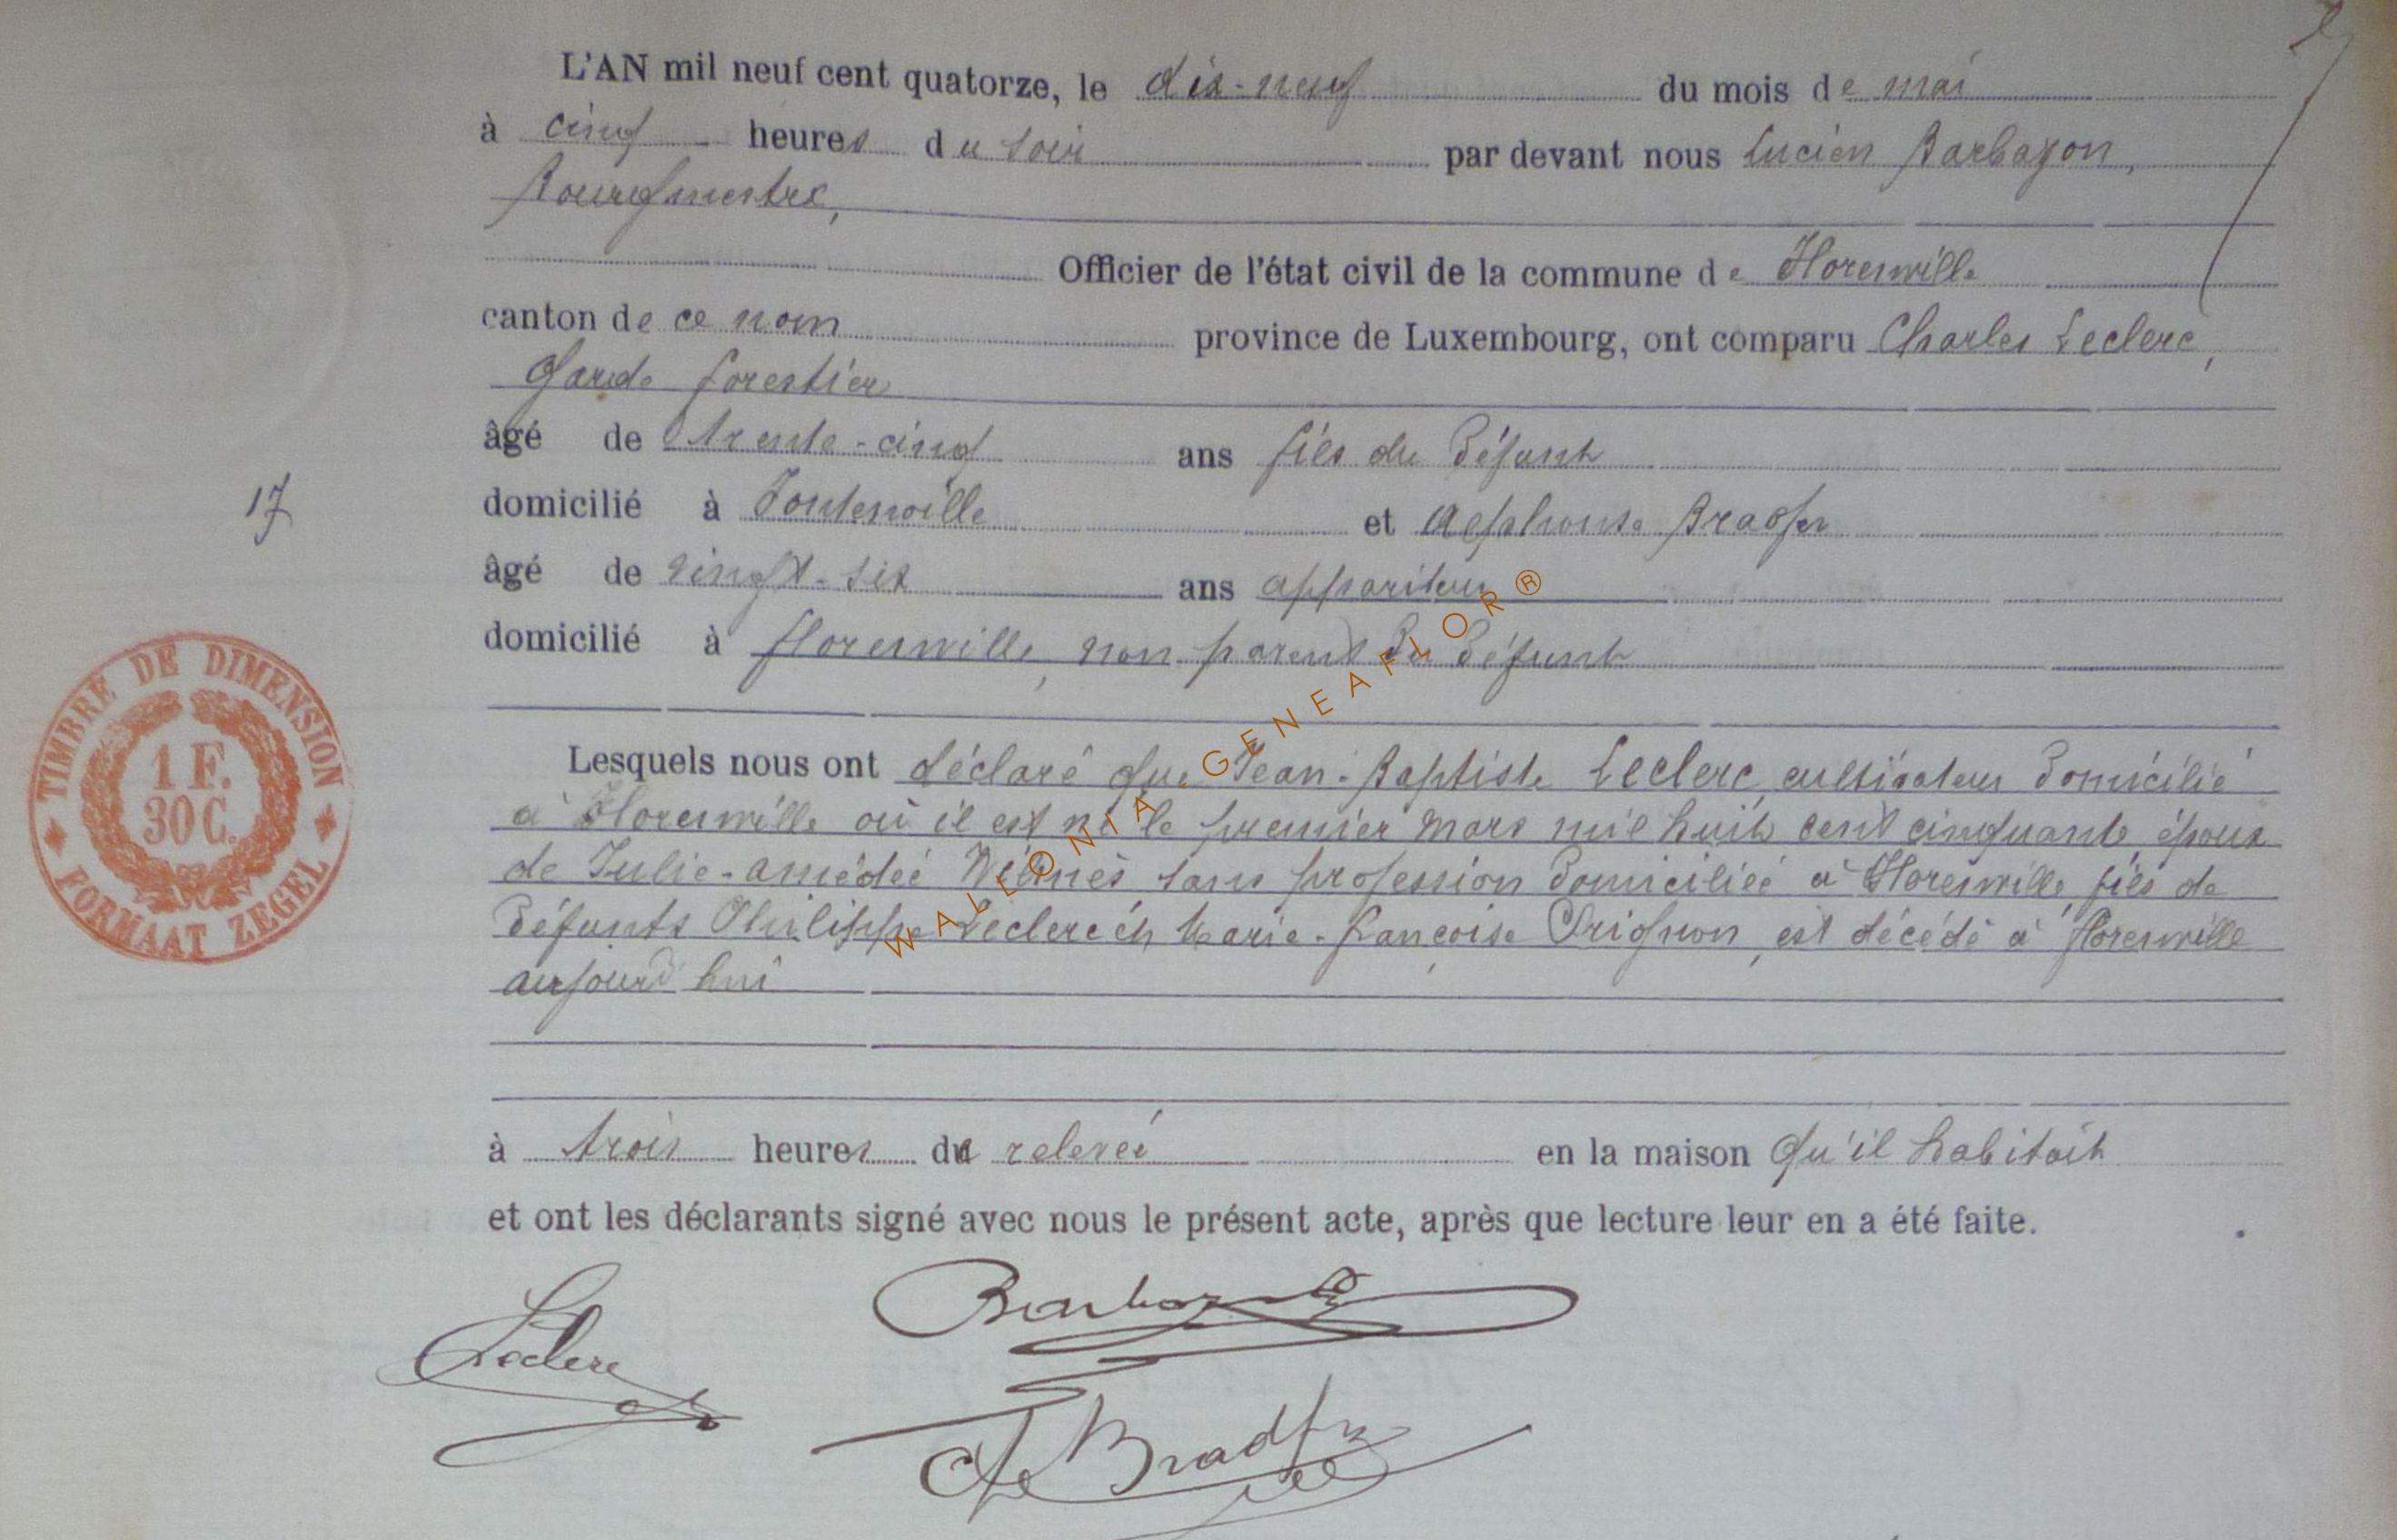 L'AN mil neuf cent quatorze, le dix-neuf du mois de mai
à cinq heures du soir par devant nous Lucien Barbazon,
Bourgmestre,
Officier de l'état civil de la commune de Florenville
canton de ce nom province de Luxembourg, ont comparu Charles Leclerc,
Garde forestier
âgé de trente-cinq ans fils du défunt
17
domicilié à Fontenoille et Alphonse Bradfer
âgé de vingt-six ans appariteur
domicilié à Florenville, non parent du défunt
Lesquels nous ont déclaré que Jean-Baptiste Leclerc, cultivateur domicilié
à Florenville où il est né le premier mars mil huit cent cinquante, époux
de Julie-Amédée sans profession domiciliée à Florenville, fils de
défunts Philippe Leclerc et Marie-Françoise Orignon, est décédé à Florenville
aujourd'hui
à trois heures de relevée en la maison qu'il habitait
et ont les déclarants signé avec nous le présent acte, après que lecture leur en a été faite.
Leclerc
Barbazon
Bradfer
TIMBRE DE DIMENSION
1 F.
30 C.
FORMAAT ZEGEL
WALLONIA GENEAFLOR ®